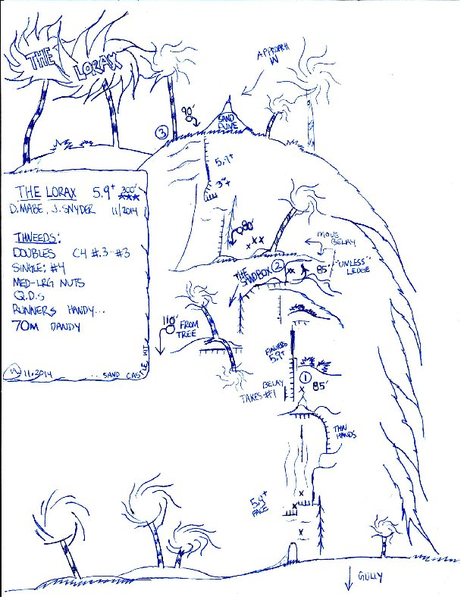 THE LORAX
APPROACH
IN
90'
3
SAND
DUNE
5.9+
3"+
THE LORAX 5.9+ 300'
★★★
D. MABE, J. SNYDER 11/2014
THNEEDS:
DOUBLES C4 #.3-#3
SINGLE: #4
MED-LRG NUTS
Q.D.S
RUNNERS HANDY...
70M DANDY
11.2014 SAND CASTLE
80'
MOVE
BELAY
THE
SANDBOX
2
85'
"UNLESS"
LEDGE
110'
FROM
TREE
FINGERS
5.9+
BELAY
TAKES #4
1
85'
THIN
HANDS
5.9+
FACE
GULLY